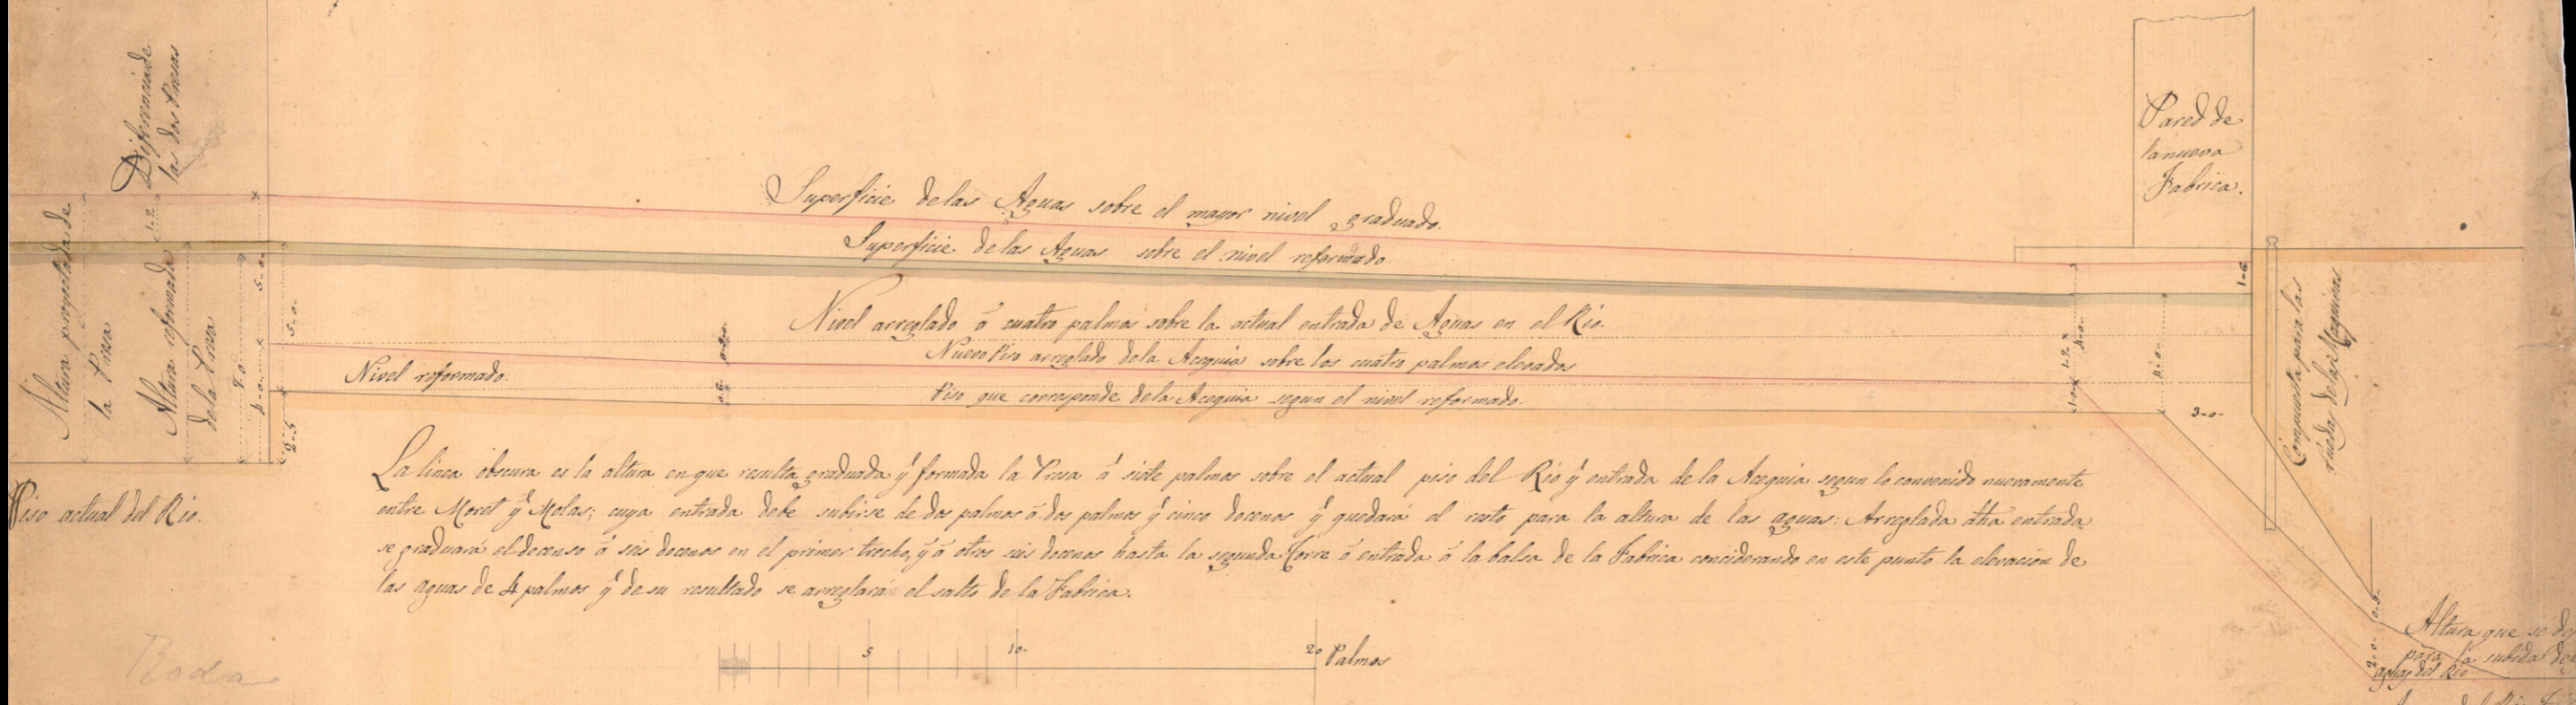 Diferencia de
las dos Presas
Altura proyectada de
la Presa
Altura reformada
de la Presa
1-2
7-0
5-0
4-0
5-0
2-5
Piso actual del Rio.
Superficie de las Aguas sobre el mayor nivel graduado.
Superficie de las Aguas sobre el nivel reformado
Nivel arreglado á cuatro palmos sobre la actual entrada de Aguas en el Rio.
Nuevo Piso arreglado dela Acequia sobre los cuatro palmos elevados
Nivel reformado.
Piso que corresponde dela Acequia segun el nivel reformado.
0-6
Pared de
la nueva
Fabrica.
1-6
4-0
1-2
1-0
4-0
3-0
Compuerta para las
Ruedas de las Maquinas
La linea obscura es la altura en que resulta graduada ý formada la Presa á siete palmos sobre el actual piso del Rio ý entrada de la Acequia segun lo convenido nuevamente
entre Moret ý Molas; cuya entrada debe subirse de dos palmos á dos palmos ý cinco docenos ý quedará el resto para la altura de las aguas: Arreglada dha entrada
se graduará el decenso á seis docenos en el primer trecho, ý á otros seis docenos hasta la segunda Torre ó entrada á la balsa de la Fabrica conciderando en este punto la elevacion de
las aguas de 4 palmos ý de su resultado se arreglará el salto de la Fabrica.
5 10 20 Palmos
Roda
2-0
Altura que se
para la subida de
aguas del Rio